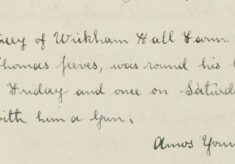 of Wickham Hall Farm
Thomas Jeeves, was round his
Friday and once on Saturd
with him a Gun.
Amos Youn